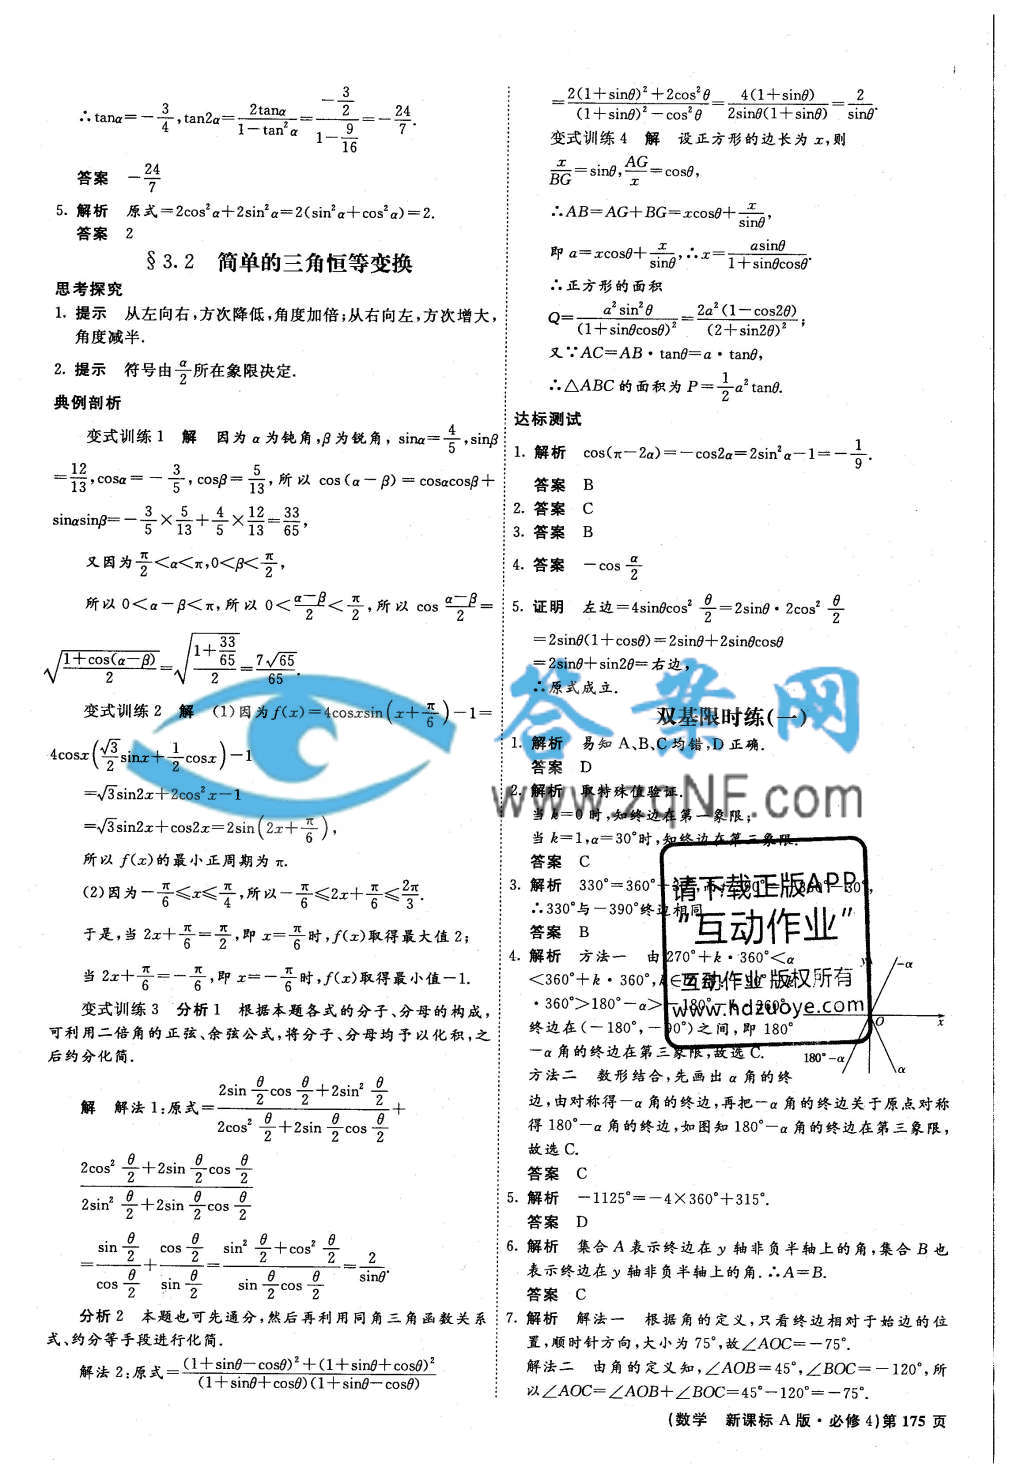 ∴tanα=-3/4,tan2α=2tanα/(1-tan²α)=(-3/2)/(1-9/16)=-24/7.
答案 -24/7
5. 解析 原式=2cos²α+2sin²α=2(sin²α+cos²α)=2.
答案 2
§3.2 简单的三角恒等变换
思考探究
1. 提示 从左向右,方次降低,角度加倍;从右向左,方次增大,
角度减半.
2. 提示 符号由α/2所在象限决定.
典例剖析
变式训练1 解 因为α为钝角,β为锐角,sinα=4/5,sinβ
=12/13,cosα=-3/5,cosβ=5/13,所以cos(α-β)=cosαcosβ+
sinαsinβ=-3/5×5/13+4/5×12/13=33/65,
又因为π/2<α<π,0<β<π/2,
所以0<α-β<π,所以0<(α-β)/2<π/2,所以cos (α-β)/2=
√((1+cos(α-β))/2)=√((1+33/65)/2)=7√65/65.
变式训练2 解 (1)因为f(x)=4cosxsin(x+π/6)-1=
4cosx(√3/2 sinx+1/2 cosx)-1
=√3sin2x+2cos²x-1
=√3sin2x+cos2x=2sin(2x+π/6),
所以f(x)的最小正周期为π.
(2)因为-π/6≤x≤π/4,所以-π/6≤2x+π/6≤2π/3.
于是,当2x+π/6=π/2,即x=π/6时,f(x)取得最大值2;
当2x+π/6=-π/6,即x=-π/6时,f(x)取得最小值-1.
变式训练3 分析1 根据本题各式的分子、分母的构成,
可利用二倍角的正弦、余弦公式,将分子、分母均予以化积,之
后约分化简.
解 解法1:原式=(2sin θ/2 cos θ/2+2sin² θ/2)/(2cos² θ/2+2sin θ/2 cos θ/2)+
(2cos² θ/2+2sin θ/2 cos θ/2)/(2sin² θ/2+2sin θ/2 cos θ/2)
=(sin θ/2)/(cos θ/2)+(cos θ/2)/(sin θ/2)=(sin² θ/2+cos² θ/2)/(sin θ/2 cos θ/2)=2/sinθ.
分析2 本题也可先通分,然后再利用同角三角函数关系
式、约分等手段进行化简.
解法2:原式=((1+sinθ-cosθ)²+(1+sinθ+cosθ)²)/((1+sinθ+cosθ)(1+sinθ-cosθ))
=(2(1+sinθ)²+2cos²θ)/((1+sinθ)²-cos²θ)=4(1+sinθ)/(2sinθ(1+sinθ))=2/sinθ.
变式训练4 解 设正方形的边长为x,则
x/BG=sinθ,AG/x=cosθ,
∴AB=AG+BG=xcosθ+x/sinθ,
即a=xcosθ+x/sinθ,∴x=asinθ/(1+sinθcosθ).
∴正方形的面积
Q=a²sin²θ/(1+sinθcosθ)²=2a²(1-cos2θ)/(2+sin2θ)²;
又∵AC=AB·tanθ=a·tanθ,
∴△ABC的面积为P=1/2 a²tanθ.
达标测试
1. 解析 cos(π-2α)=-cos2α=2sin²α-1=-1/9.
答案 B
2. 答案 C
3. 答案 B
4. 答案 -cos α/2
5. 证明 左边=4sinθcos² θ/2=2sinθ·2cos² θ/2
=2sinθ(1+cosθ)=2sinθ+2sinθcosθ
=2sinθ+sin2θ=右边,
∴原式成立.
双基限时练(一)
1. 解析 易知A、B、C均错,D正确.
答案 D
2. 解析 取特殊值验证.
当k=0时,知终边在第一象限;
当k=1,α=30°时,知终边在第三象限.
答案 C
3. 解析 330°=360°
∴330°与-390°终边相同
答案 B
4. 解析 方法一 由270°+k·360°<α
<360°+k·360°,
·360°>180°-α>
终边在(-180°,-90°)之间,即180°
-α角的终边在第三象限,故选C.
方法二 数形结合,先画出α角的终
边,由对称得-α角的终边,再把-α角的终边关于原点对称
得180°-α角的终边,如图知180°-α角的终边在第三象限,
故选C.
答案 C
y
-α
O
x
180°-α
α
5. 解析 -1125°=-4×360°+315°.
答案 D
6. 解析 集合A表示终边在y轴非负半轴上的角,集合B也
表示终边在y轴非负半轴上的角.∴A=B.
答案 C
7. 解析 解法一 根据角的定义,只看终边相对于始边的位
置,顺时针方向,大小为75°,故∠AOC=-75°.
解法二 由角的定义知,∠AOB=45°,∠BOC=-120°,所
以∠AOC=∠AOB+∠BOC=45°-120°=-75°.
(数学 新课标A版·必修4)第175页
答案网
www.zqNF.com
请下载正版APP
"互动作业"
互动作业 版权所有
www.hdzuoye.com